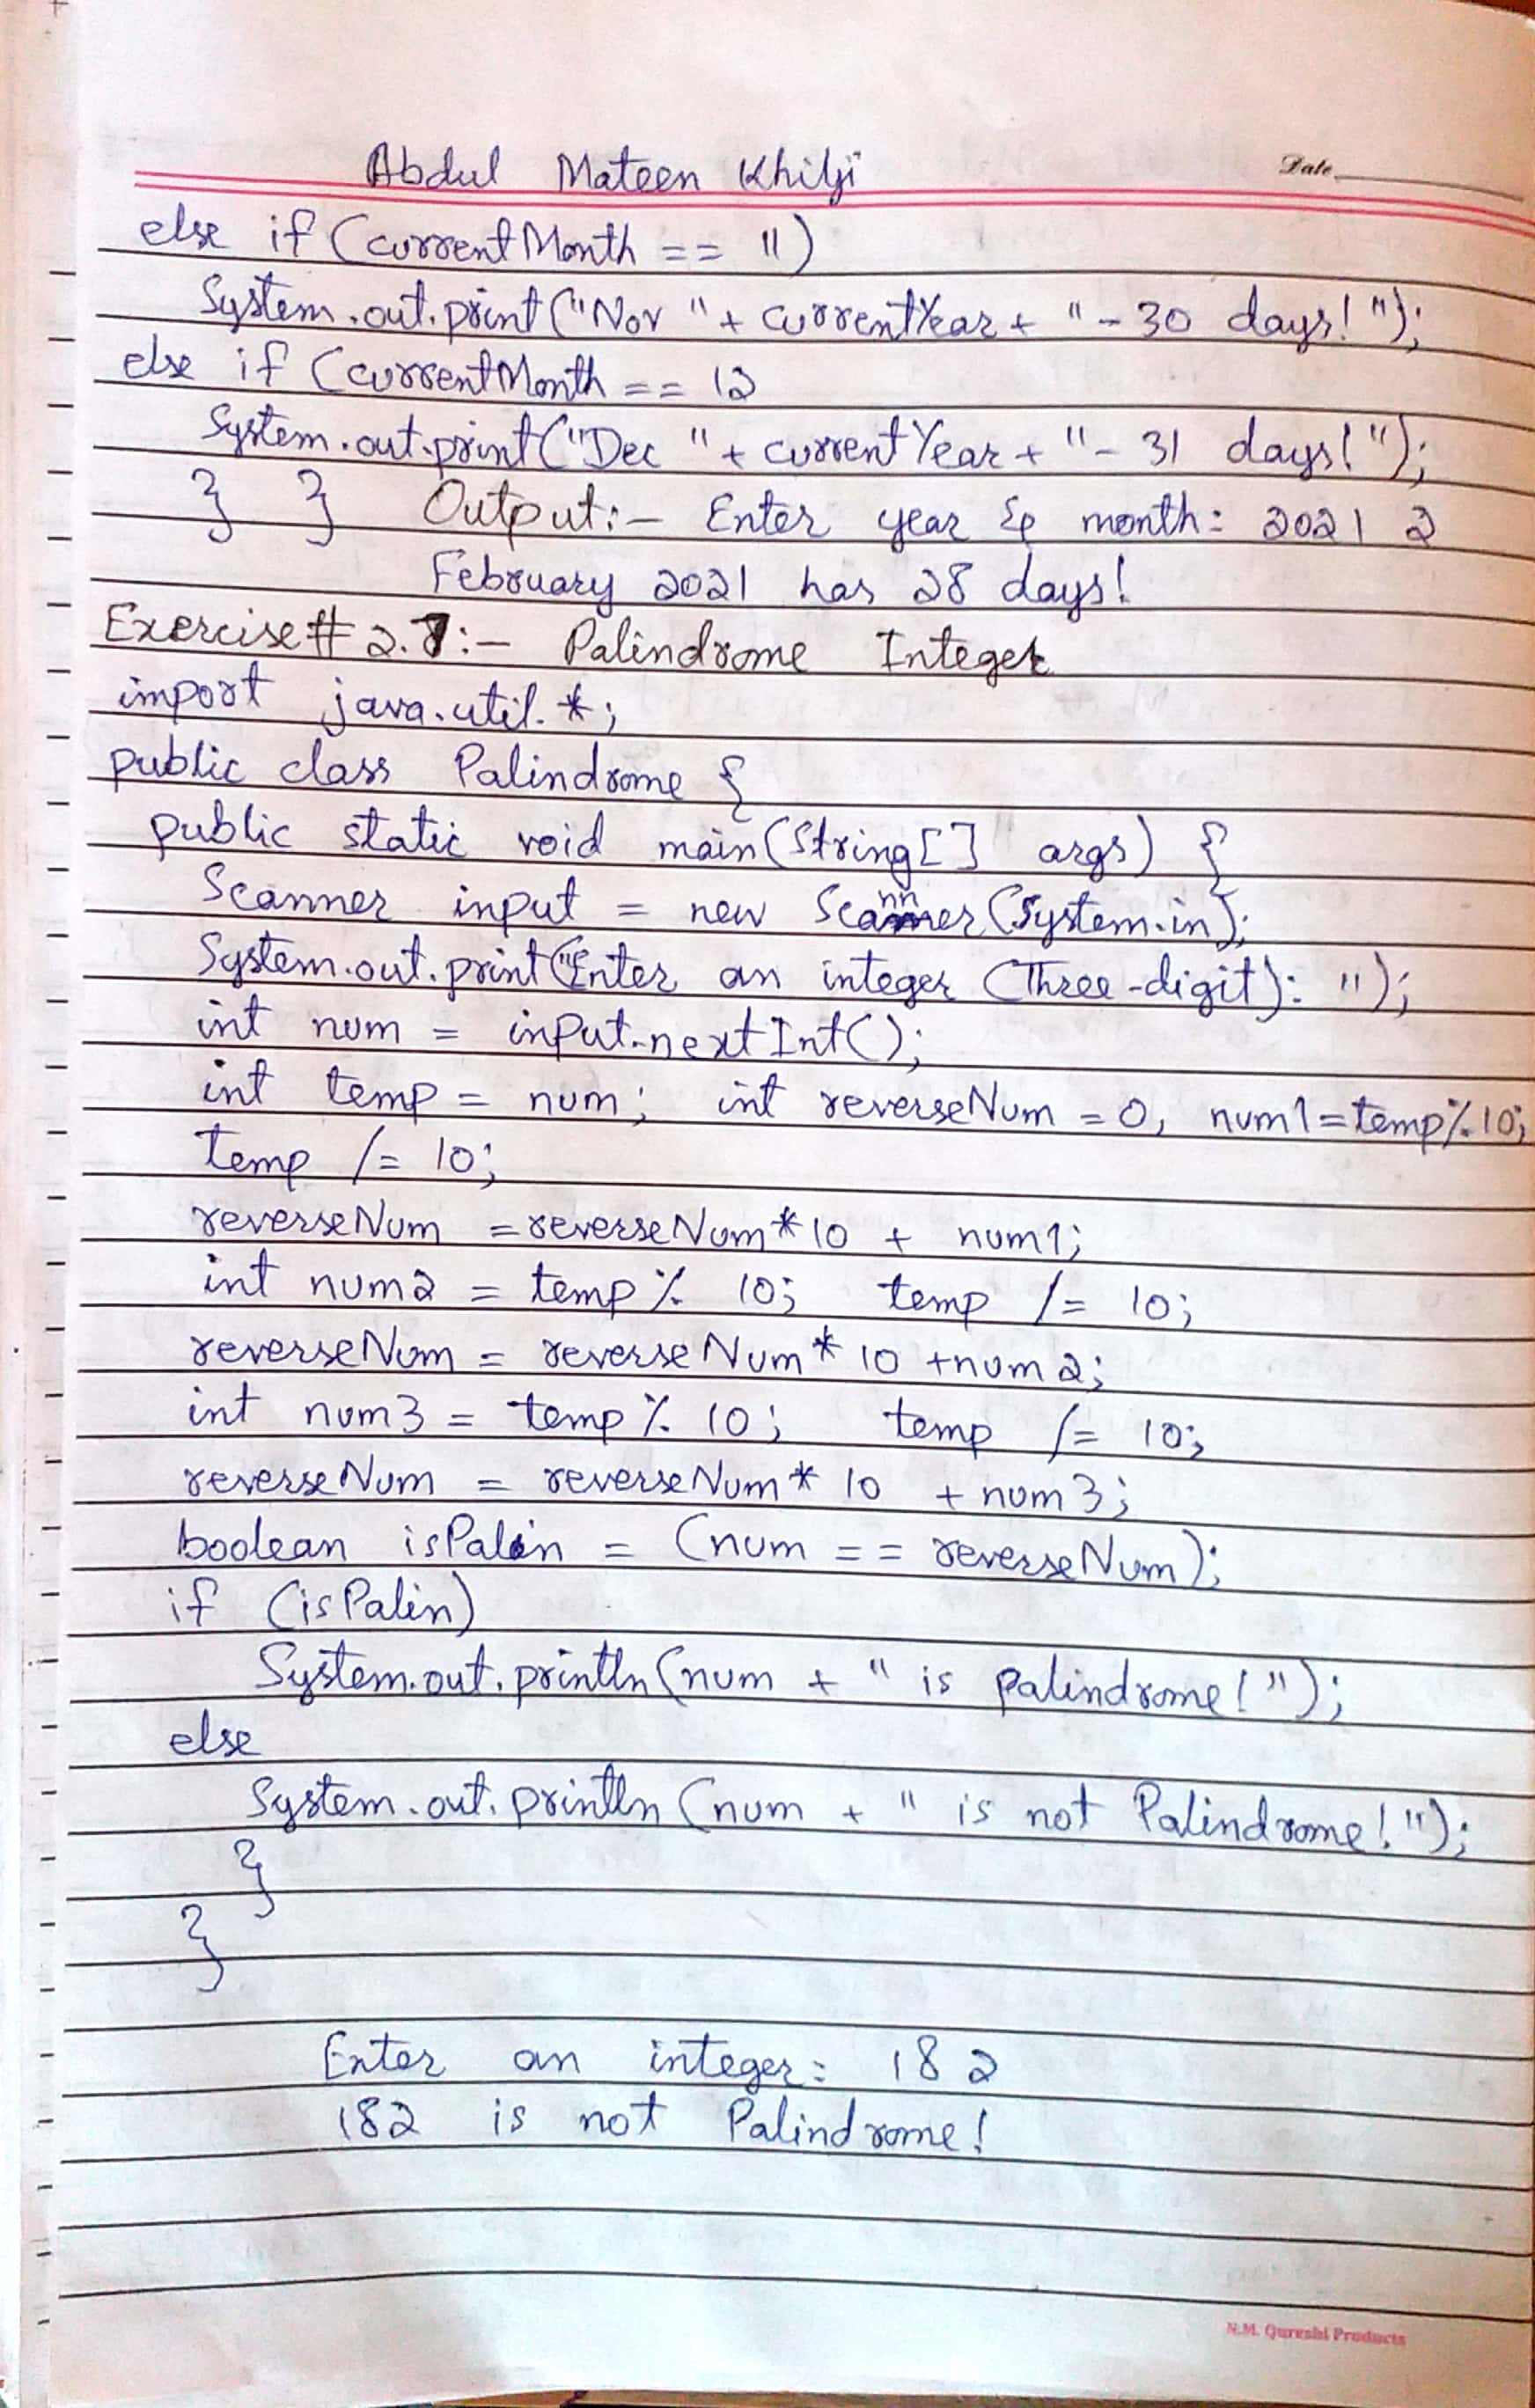 Abdul Mateen Khilji
Date
else if (currentMonth == 11)
System.out.print("Nov "+ currentYear + "- 30 days!");
else if (currentMonth == 12
System.out.print("Dec "+ currentYear + "- 31 days!");
} } Output:- Enter year & month: 2021 2
February 2021 has 28 days!
Exercise# 2.7:- Palindrome Integer
import java.util.*;
public class Palindrome {
public static void main(String[] args) {
Scanner input = new Scanner(System.in);
System.out.print("Enter an integer (Three-digit): ");
int num = input.nextInt();
int temp = num; int reverseNum = 0, num1=temp%10;
temp /= 10;
reverseNum = reverseNum*10 + num1;
int num2 = temp % 10; temp /= 10;
reverseNum = reverseNum* 10 +num2;
int num3 = temp % 10; temp /= 10;
reverseNum = reverseNum* 10 + num3;
boolean isPalin = (num == reverseNum);
if (isPalin)
System.out.println(num + " is palindrome!");
else
System.out.println(num + " is not Palindrome!");
}
}
Enter an integer: 182
182 is not Palindrome!
N.M. Qureshi Products